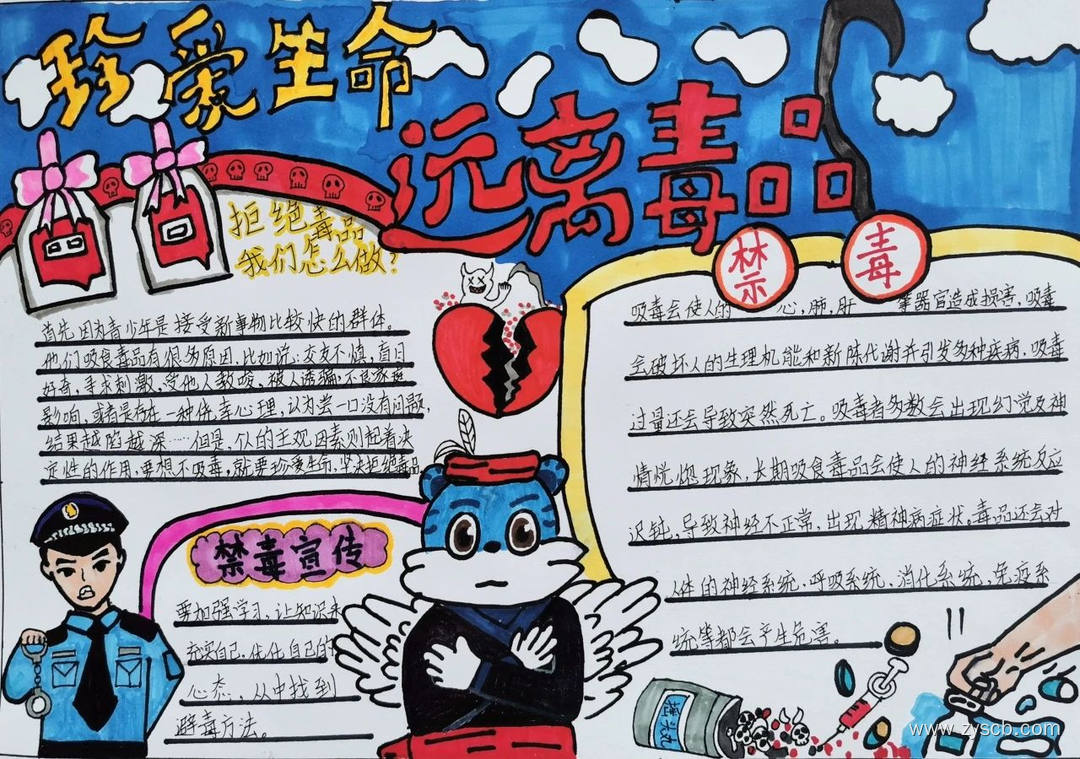 珍爱生命
远离毒品
拒绝毒品
我们怎么做?
首先因为青少年是接受新事物比较快的群体。
他们吸食毒品有很多原因,比如说:交友不慎,盲目
好奇,寻求刺激,受他人教唆,被人诱骗,不良家庭
影响,或者是存在一种侥幸心理,认为尝一口没有问题,
结果越陷越深……但是,个人的主观因素则起着决
定性的作用,要想不吸毒,就要珍爱生命,坚决拒绝毒品
禁毒宣传
要加强学习,让知识来
充实自己,优化自己的
心态,从中找到
避毒方法。
禁毒
吸毒会使人的 心,肺,肝 等器官造成损害,吸毒
会破坏人的生理机能和新陈代谢并引发多种疾病,吸毒
过量还会导致突然死亡。吸毒者多数会出现幻觉及神
情恍惚现象,长期吸食毒品会使人的神经系统反应
迟钝,导致神经不正常,出现精神病症状,毒品还会对
人体的神经系统,呼吸系统,消化系统,免疫系
统等都会产生危害。
摇头丸
www.zyscb.com